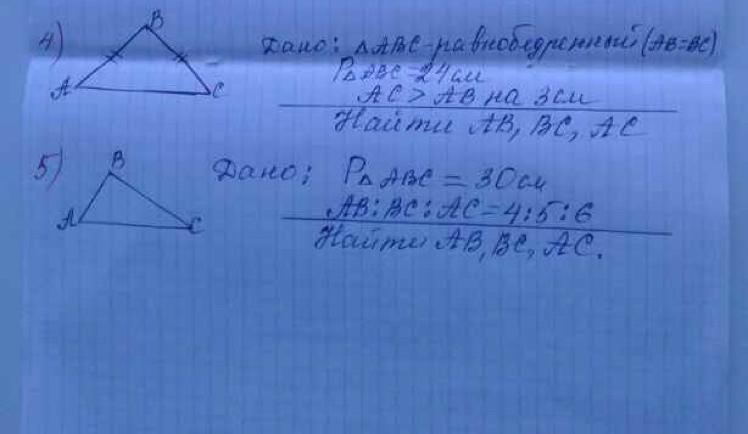 4)
B
A
C
Дано: △ABC-равнобедренный (AB=BC)
P△ABC=24см
AC > AB на 3см
Найти AB, BC, AC
5)
B
A
C
Дано: P△ABC = 30см
AB:BC:AC=4:5:6
Найти AB, BC, AC.